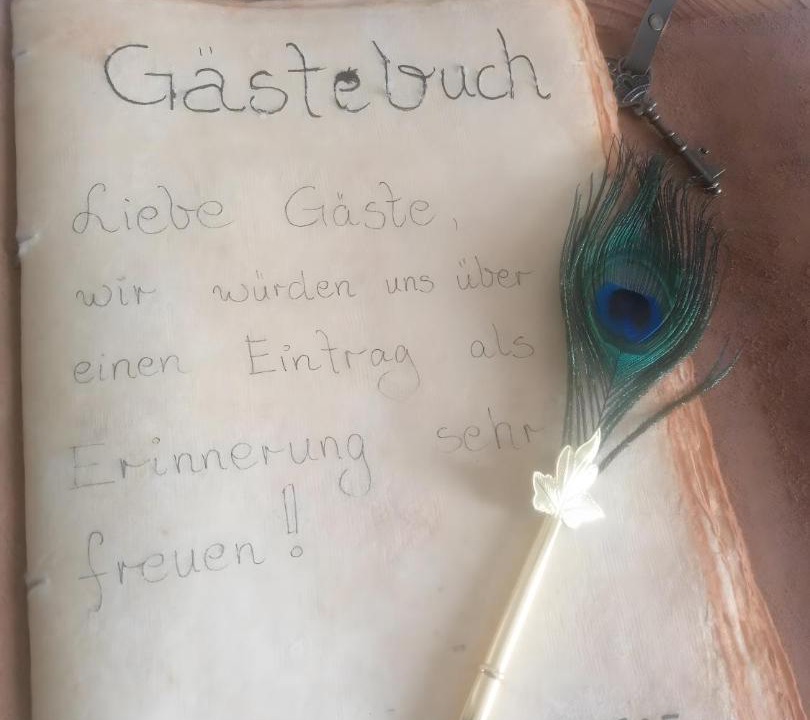 Gästebuch
Liebe Gäste,
wir würden uns über
einen Eintrag als
Erinnerung sehr
freuen!